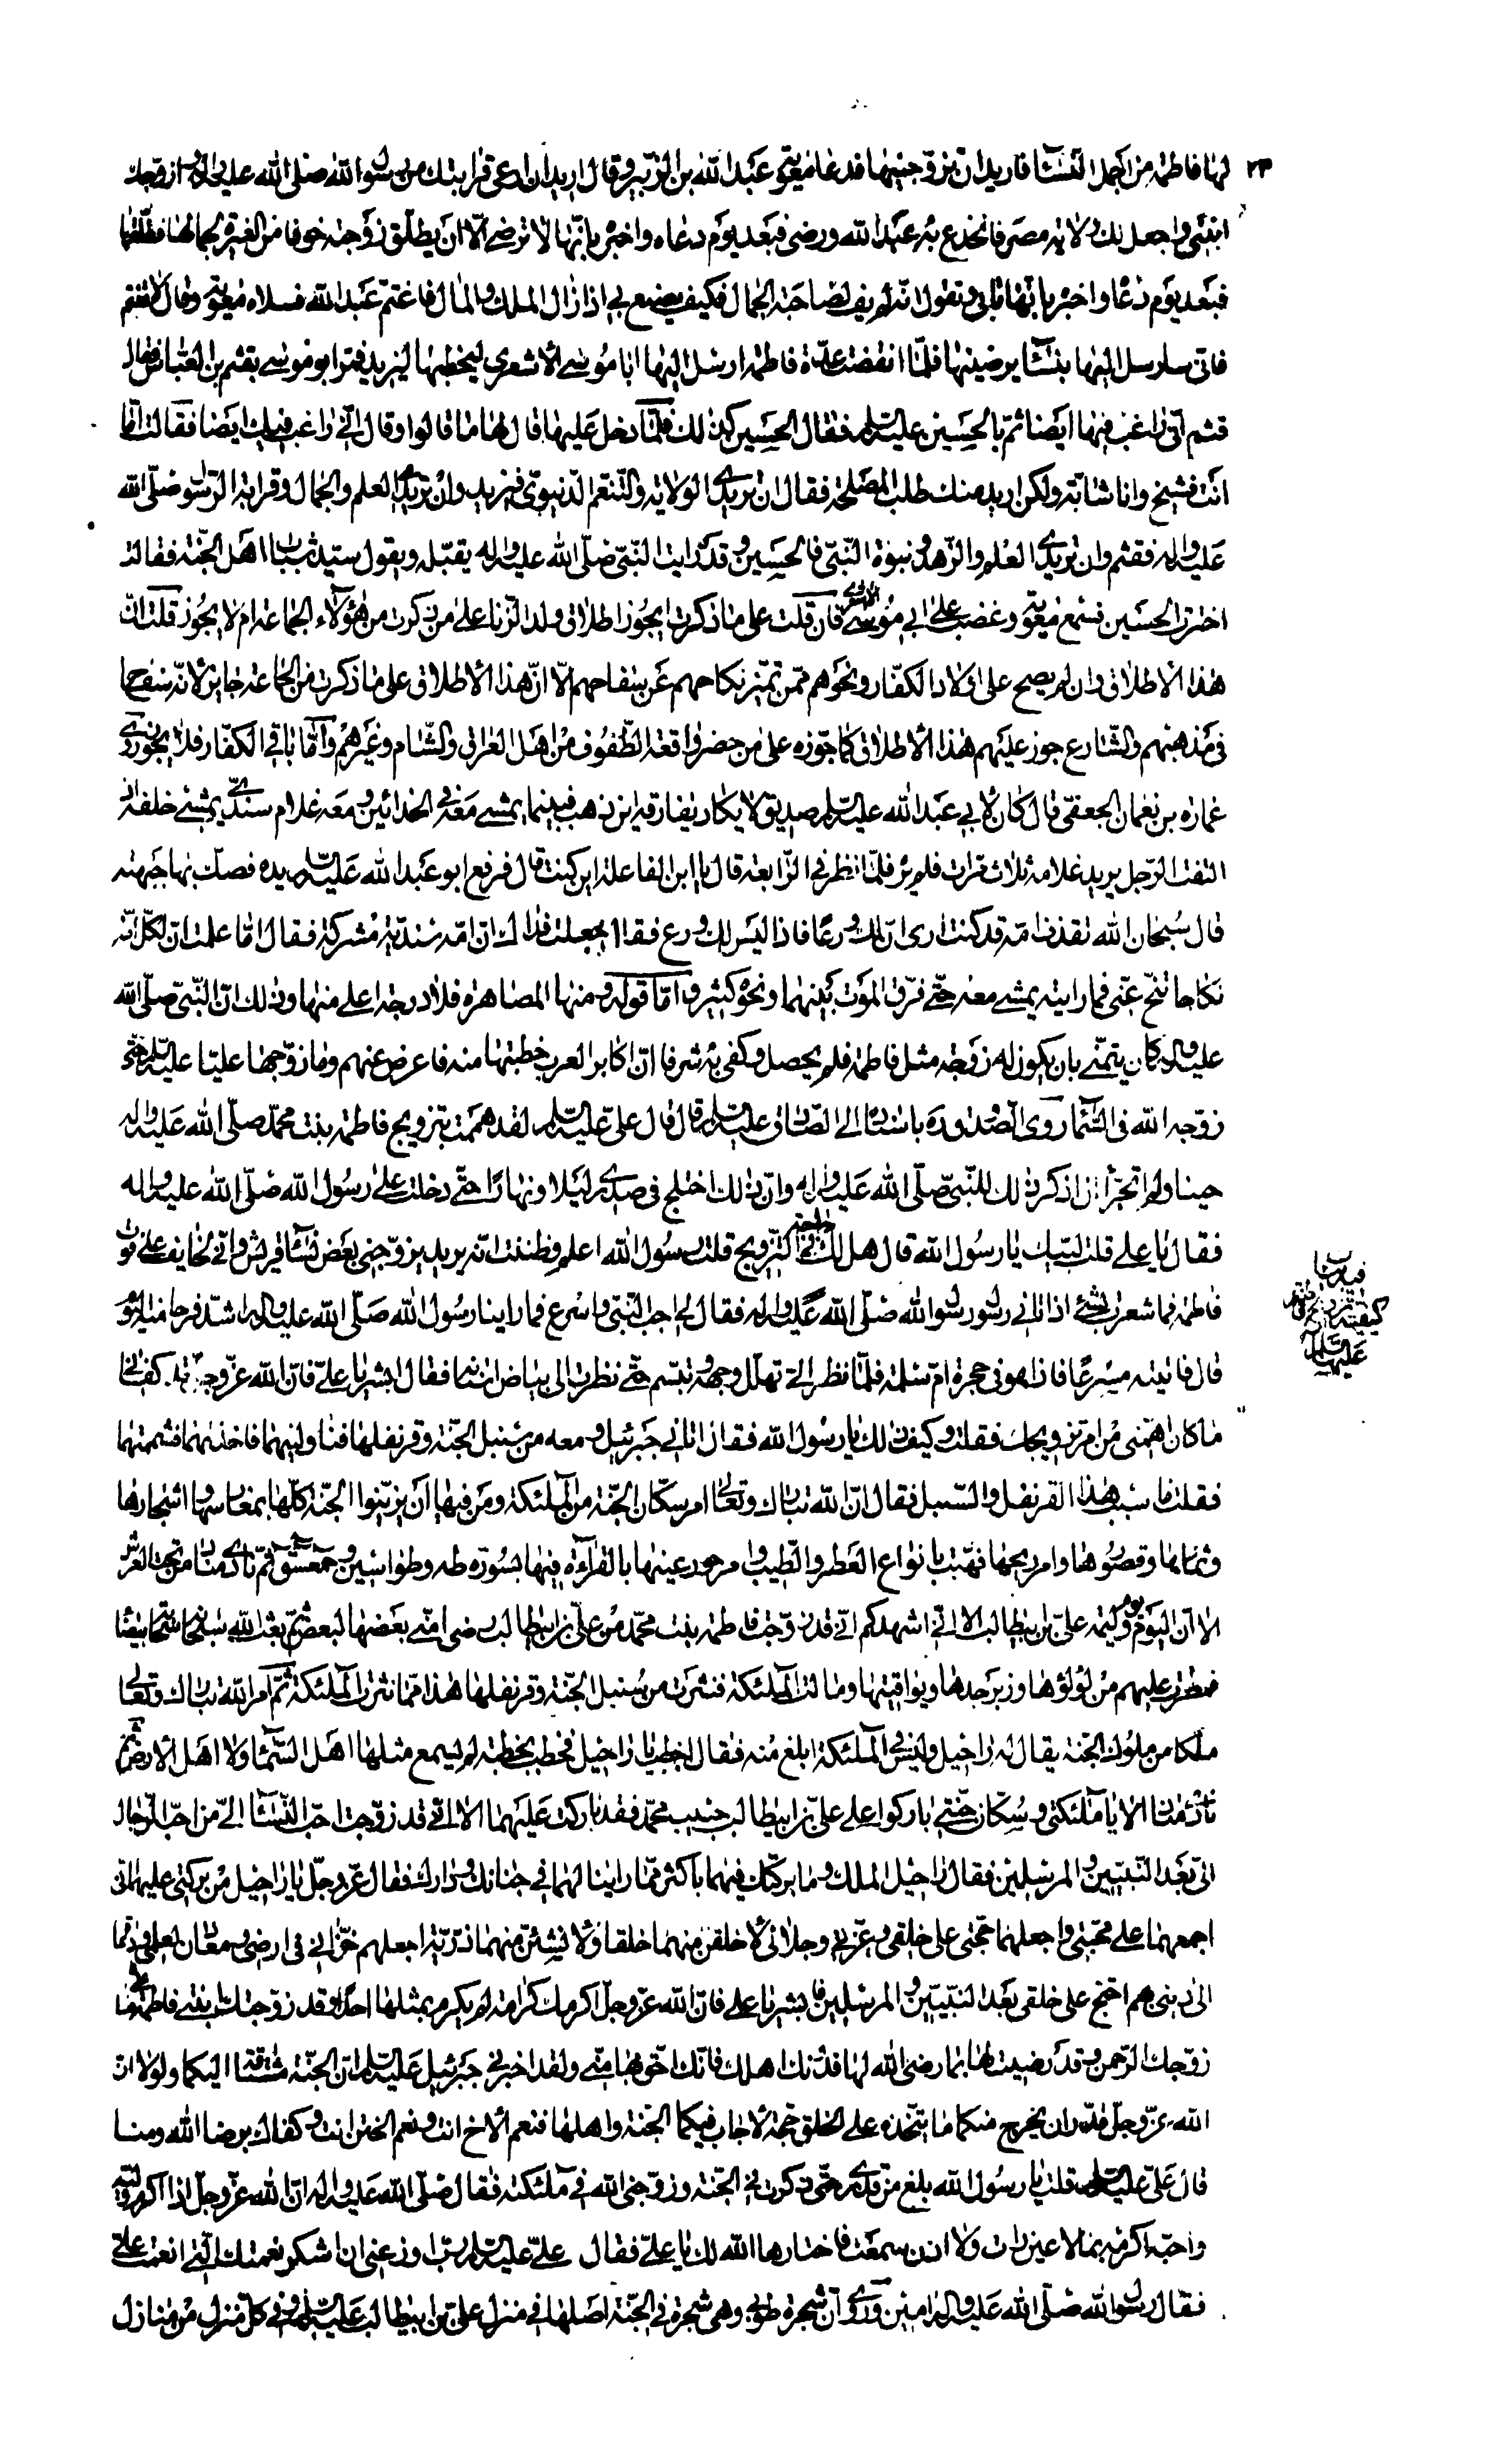 ٢٣ لها فاطمة من اجمل النساء فاريد ان تزوجنيها فدعا معوية عبد الله بن الزبير وقال اريد ان ادعى قرابتك من رسول الله صلى الله عليه واله ازوجك
ابنتي واجعل لك ولاية مصر فانخدع به عبد الله ورضى فبعد يوم دعاه واخبره بانها لا ترضى الا ان يطلق زوجته خوفا من الغيرة لجمالها فطلقها
فبعد يوم دعا واخبره بانها تابى وتقول انه لم يف لصاحبة الجمال فكيف يصنع بي اذا زال الملك والمال فاغتم عبد الله فسلاه معوية وقال لا تغتم
فاني سارسل اليها بنساء يرضينها فلما انقضت عدة فاطمة ارسل اليها ابا موسى الاشعري ليخطبها ليزيد فمر ابو موسى بقثم بن العباس فقال
قثم اني راغب فيها ايضا ثم بالحسين عليه السلم فقال الحسين كذلك فلما دخل عليها قال لها ما قالوا وقال اني راغب فيك ايضا فقالت اما
انت فشيخ وانا شابة ولكن اريد منك طلب المصلحة فقال ان تريدي الولاية والتنعم الدنيوي فيزيد وان تريدي العلم والجمال وقرابة الرسول صلى الله
عليه واله فقثم وان تريدي العلم والزهد وبنوة النبي فالحسين وقد رايت النبي صلى الله عليه واله يقبله ويقول سيد شباب اهل الجنة فقالت
اخترت الحسين فسمع معوية وغضب على ابي موسى الاشعري فان قلت على ما ذكرت ايجوز اطلاق ولد الزنا على من ذكرت من هؤلاء الجماعة ام لا يجوز قلت ان
هذا الاطلاق وان لم يصح على اولاد الكفار ونحوهم ممن تميز نكاحهم عن سفاحهم الا ان هذا الاطلاق على ما ذكرت من الجماعة جايز لانه سفح
في مذهبهم والشارع جوز عليهم هذا الاطلاق كما جوزه على من حضر واقعة الطفوف من اهل العراق والشام وغيرهم واما باقي الكفار فلا يجوز روى
عمارة بن نعمان الجعفي قال كان لابي عبد الله عليه السلم صديق لا يكاد يفارقه اين ذهب فبينما يمشي معه في الحذائين ومعه غلام سندي يمشي خلفه اذ
التفت الرجل يريد غلامه ثلاث مرات فلم يره فلما نظر في الرابعة قال يا ابن الفاعلة اين كنت قال فرفع ابو عبد الله عليه السلم يده فصك بها جبهته
قال سبحان الله تقذف امه قد كنت ارى ان لك ورعا فاذا ليس لك ورع فقال جعلت فداك ان امه سندية مشركة فقال اما علمت ان لكل امة
نكاحا تنح عني فما رايته يمشي معه حتى فرق الموت بينهما ونحوه كثير واما قوله ومنها المصاهرة فلا درجة اعلى منها وذلك ان النبي صلى الله
عليه واله كان يتمنى بان يكون له زوجة مثل فاطمة فلم يحصل وكفى به شرفا ان اكابر العرب خطبتها منه فاعرض عنهم وما زوجها عليا عليه السلم حتى
زوجه الله في السماء روى الصدوق باسناده الى الصادق عليه السلم قال قال علي عليه السلم لقد هممت بتزويج فاطمة بنت محمد صلى الله عليه واله
حينا ولم اتجرأ ان اذكر ذلك للنبي صلى الله عليه واله وان ذلك اختلج في صدري ليلا ونهارا حتى دخلت على رسول الله صلى الله عليه واله
فقال يا علي قلت لبيك يا رسول الله قال هل لك حاجة في التزويج قلت رسول الله اعلم وظننت انه يريد يزوجني بعض نساء قريش واني لخايف على فوت
فاطمة فما شعرت بشئ اذ اتاني رسول رسول الله صلى الله عليه واله فقال لي اجب النبي واسرع فما راينا رسول الله صلى الله عليه واله اشد فرحا منه اليوم
قال فاتيته مسرعا فاذا هو في حجرة ام سلمة فلما نظر الي تهلل وجهه وتبسم حتى نظرت الى بياض اسنانه فقال ابشر يا علي فان الله عز وجل قد كفاني
ما كان اهمني من امر تزويجك فقلت وكيف ذلك يا رسول الله فقال اتاني جبرئيل ومعه من سنبل الجنة وقرنفلها فناولنيهما فاخذتهما فشممتهما
فقلت ما سبب هذا القرنفل والسنبل فقال ان الله تبارك وتعالى امر سكان الجنة من الملئكة ومن فيها ان يزينوا الجنة كلها بمغارسها واشجارها
وثمارها وقصورها وامر ريحها فهبت بانواع العطر والطيب وامر حور عينها بالقراءة فيها بسورة طه وطواسين وحمعسق ثم نادى مناد من تحت العرش
الا ان اليوم يوم وليمة علي بن ابيطالب الا اني اشهدكم اني قد زوجت فاطمة بنت محمد من علي بن ابيطالب رضى مني بعضها لبعض ثم بعث الله سبحانه سحابة بيضاء
فمطرت عليهم من لؤلؤها وزبرجدها ويواقيتها وقامت الملئكة فنثرت من سنبل الجنة وقرنفلها هذا مما نثرت الملئكة ثم امر الله تبارك وتعالى
ملكا من ملوك الجنة يقال له راحيل وليس في الملئكة ابلغ منه فقال اخطب يا راحيل فخطب بخطبة لم يسمع مثلها اهل السماء ولا اهل الارض ثم
نادى مناد الا يا ملئكتي وسكان جنتي باركوا على علي بن ابيطالب حبيب محمد فقد باركت عليهما الا اني قد زوجت احب النساء الي من احب الرجال
الي بعد النبيين والمرسلين فقال راحيل الملك وما بركتك فيهما باكثر مما راينا لهما في جنانك ودارك فقال عز وجل يا راحيل من بركتي عليهما اني
اجمعهما على محبتي واجعلهما حجتي على خلقي وعزتي وجلالي لاخلقن منهما خلقا ولانشئن منهما ذرية اجعلهم خزاني في ارضي ومعادن لعلمي ودعاة
الى ديني بهم احتج على خلقي بعد النبيين والمرسلين فابشر يا علي فان الله عز وجل اكرمك كرامة لم يكرم بمثلها احدا وقد زوجتك بنتي فاطمة على ما
زوجك الرحمن وقد رضيت لها بما رضى الله لها فدونك اهلك فانك احق بها مني ولقد اخبرني جبرئيل عليه السلم ان الجنة مشتاقة اليكما ولولا ان
الله عز وجل قدر ان يخرج منكما ما يتخذه على الخلق حجة لاجاب فيكما الجنة واهلها فنعم الاخ انت ونعم الختن انت وكفاك برضا الله رضا
قال علي عليه السلم قلت يا رسول الله بلغ من قدري حتى ذكرت في الجنة وزوجني الله في ملئكته فقال صلى الله عليه واله ان الله عز وجل اذا اكرم وليه
واحبه اكرمه بما لا عين رات ولا اذن سمعت فاختارها الله لك يا علي فقال علي عليه السلم رب اوزعني ان اشكر نعمتك التي انعمت علي
فقال رسول الله صلى الله عليه واله امين وروى ان شجرة طوبى وهي شجرة في الجنة اصلها في منزل علي بن ابيطالب عليه السلم وفي كل منزل من منازل
كيفية تزويج
عليها السلم